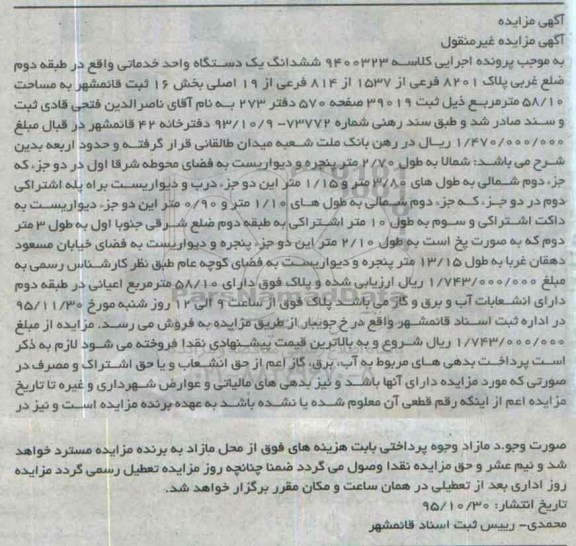 آگهی مزایده
آگهی مزایده غیرمنقول
به موجب پرونده اجرایی کلاسه ۹۴۰۰۳۲۳ ششدانگ یک دستگاه واحد خدماتی واقع در طبقه دوم
ضلع غربی پلاک ۸۲۰۱ فرعی از ۱۵۳۷ از ۸۱۴ فرعی از ۱۹ اصلی بخش ۱۶ ثبت قائمشهر به مساحت
۵۸/۱۰ مترمربع ذیل ثبت ۳۹۰۱۹ صفحه ۵۷۰ دفتر ۲۷۳ به نام آقای ناصرالدین فتحی قادی ثبت
و سند صادر شد و طبق سند رهنی شماره ۷۳۷۷۲- ۹۳/۱۰/۹ دفترخانه ۴۲ قائمشهر در قبال مبلغ
۱/۴۷۰/۰۰۰/۰۰۰ ریال در رهن بانک ملت شعبه میدان طالقانی قرار گرفته و حدود اربعه بدین
شرح می باشد: شمالا به طول ۲/۷۰ متر پنجره و دیواریست به فضای محوطه شرقا اول در دو جز، که
جز، دوم شمالی به طول های ۳/۸۰ متر و ۱/۱۵ متر این دو جز، درب و دیواریست براه پله اشتراکی
دوم در دو جز، که جز، دوم شمالی به طول های ۱/۱۰ متر و ۰/۹۰ متر این دو جز، دیواریست به
داکت اشتراکی و سوم به طول ۱۰ متر اشتراکی به طبقه دوم ضلع شرقی جنوبا اول به طول ۳ متر
دوم که به صورت پخ است به طول ۲/۱۰ متر این دو جز، پنجره و دیواریست به فضای خیابان مسعود
دهقان غربا به طول ۱۳/۱۵ متر پنجره و دیواریست به فضای کوچه عام طبق نظر کارشناس رسمی به
مبلغ ۱/۷۴۳/۰۰۰/۰۰۰ ریال ارزیابی شده و پلاک فوق دارای ۵۸/۱۰ مترمربع اعیانی در طبقه دوم
دارای انشعابات آب و برق و گاز می باشد پلاک فوق از ساعت ۹ الی ۱۲ روز شنبه مورخ ۹۵/۱۱/۳۰
در اداره ثبت اسناد قائمشهر واقع در خ جویبار از طریق مزایده به فروش می رسد. مزایده از مبلغ
۱/۷۴۳/۰۰۰/۰۰۰ ریال شروع و به بالاترین قیمت پیشنهادی نقدا فروخته می شود لازم به ذکر
است پرداخت بدهی های مربوط به آب، برق، گاز اعم از حق انشعاب و یا حق اشتراک و مصرف در
صورتی که مورد مزایده دارای آنها باشد و نیز بدهی های مالیاتی و عوارض شهرداری و غیره تا تاریخ
مزایده اعم از اینکه رقم قطعی آن معلوم شده یا نشده باشد به عهده برنده مزایده است و نیز در
صورت وجود مازاد وجوه پرداختی بابت هزینه های فوق از محل مازاد به برنده مزایده مسترد خواهد
شد و نیم عشر و حق مزایده نقدا وصول می گردد ضمنا چنانچه روز مزایده تعطیل رسمی گردد مزایده
روز اداری بعد از تعطیلی در همان ساعت و مکان مقرر برگزار خواهد شد.
تاریخ انتشار: ۹۵/۱۰/۳۰
محمدی- رییس ثبت اسناد قائمشهر